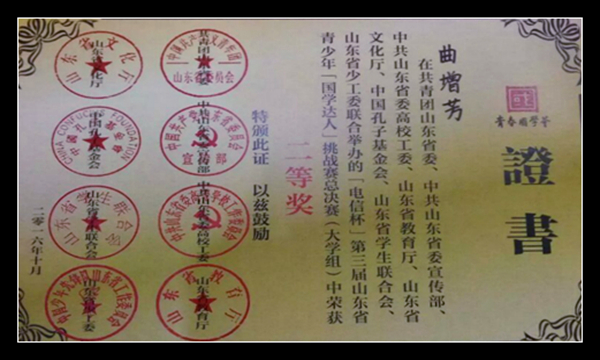 證書
曲增芳
在共青团山东省委、中共山东省委宣传部、
中共山东省委高校工委、山东省教育厅、山东省
文化厅、中国孔子基金会、山东省学生联合会、
山东省少工委联合举办的「电信杯」第三届山东省
青少年「国学达人」挑战赛总决赛（大学组）中荣获
二等奖
特颁此证 以兹鼓励
共青团山东省委
中共山东省委宣传部
中共山东省委高校工委
山东省教育厅
山东省文化厅
中国孔子基金会
CHINA CONFUCIUS FOUNDATION
山东省学生联合会
山东省少工委
二〇一六年十月